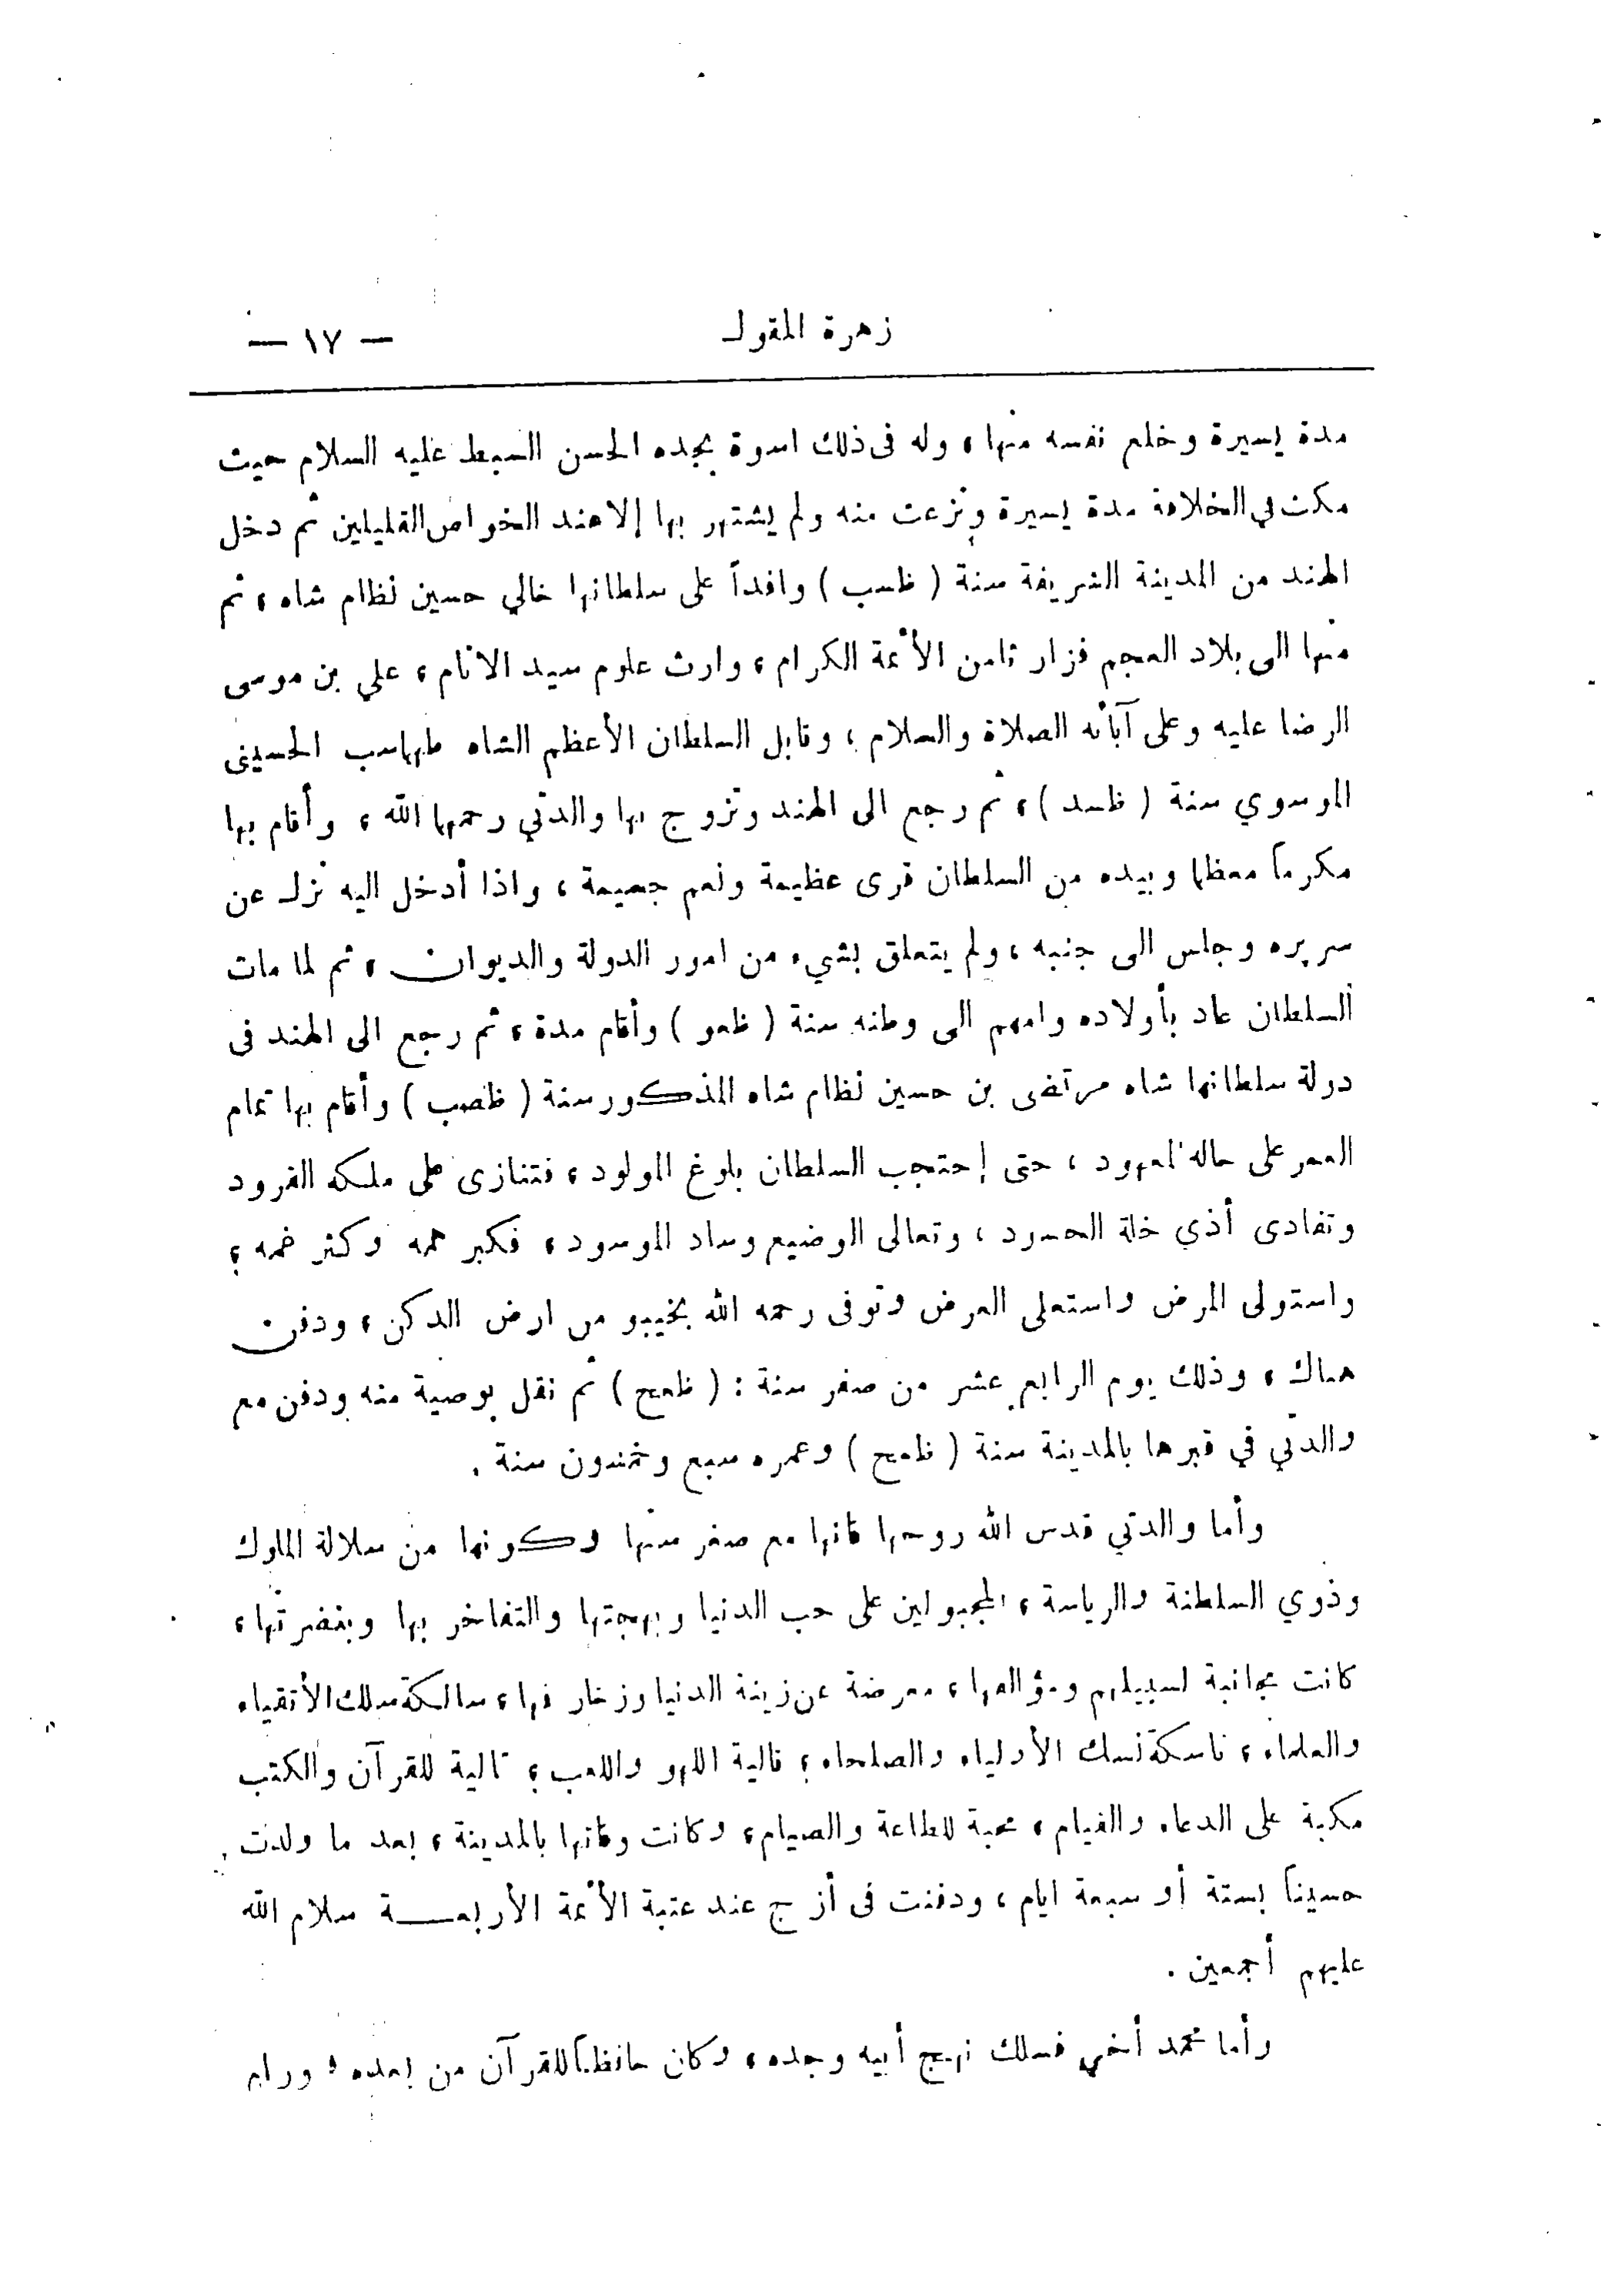 زهرة المقول
— ١٧ —
مدة يسيرة وخلع نفسه منها ، وله فى ذلك اسوة بجده الحسن السبط عليه السلام حيث
مكث في الخلافة مدة يسيرة ونزعت منه ولم يشتهر بها إلا عند الخواص القليلين ثم دخل
الهند من المدينة الشريفة سنة ( ظسب ) وافداً على سلطانها خالي حسين نظام شاه ، ثم
منها الى بلاد العجم فزار ثامن الأئمة الكرام ، وارث علوم سيد الانام ، علي بن موسى
الرضا عليه وعلى آبائه الصلاة والسلام ، وقابل السلطان الأعظم الشاه طهماسب الحسينى
الموسوي سنة ( ظسد ) ، ثم رجع الى الهند وتزوج بها والدتي رحمها الله ، وأقام بها
مكرماً معظما وبيده من السلطان قرى عظيمة ونعم جسيمة ، واذا أدخل اليه نزل عن
سريره وجلس الى جنبه ، ولم يتعلق بشيء من امور الدولة والديوان ، ثم لما مات
السلطان عاد بأولاده وامهم الى وطنه سنة ( ظعو ) وأقام مدة ، ثم رجع الى الهند فى
دولة سلطانها شاه مرتضى بن حسين نظام شاه المذكور سنة ( ظصب ) وأقام بها تمام
العمر على حاله المعهود ، حتى إحتجب السلطان بلوغ المولود ، فتنازى على ملكه القرود
وتفادى أذي خلة الحسود ، وتعالى الوضيع وساد الموسود ، فكبر همه وكثر غمه ،
واستولى المرض واستعلى العرض وتوفى رحمه الله بخيبو من ارض الدكن ، ودفن
هناك ، وذلك يوم الرابع عشر من صفر سنة : ( ) ثم نقل بوصية منه ودفن مع
والدتي في قبرها بالمدينة سنة ( ) وعمره سبع وخمسون سنة .
وأما والدتي قدس الله روحها فانها مع صغر سنها وكونها من سلالة الملوك
وذوي السلطنة والرياسة ، المجبولين على حب الدنيا وبهجتها والتفاخر بها وبنضرتها ،
كانت مجانبة لسبيلهم ومؤالفها ، معرضة عن زينة الدنيا وزخارفها ، سالكة مسلك الأتقياء
والعلماء ، ناسكة نسك الأولياء والصلحاء ، قالية اللهو واللعب ، تالية للقرآن والكتب
مكبة على الدعاء والقيام ، محبة للطاعة والصيام ، وكانت وفاتها بالمدينة ، بعد ما ولدت
حسيناً بستة أو سبعة ايام ، ودفنت فى أزج عند عتبة الأئمة الأربعـــة سلام الله
عليهم أجمعين .
وأما محمد أخي فسلك نهج أبيه وجده ، وكان حافظاً للقرآن من بعده ،